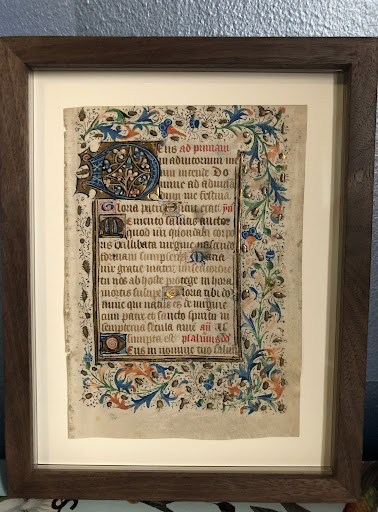 Deus ad primam
in adiutorium me
um intende Do
mine ad adiuuā
dum me festina
Gloria patri Sicut erat ym̄s
Memento salutis auctor
quod nr̄i quondam corpo
ris ex illibata virgine nascendo
formam sumpseris Maria
mr̄ gratie mater misericordie
tu nos ab hoste protege in hora
mortis suscipe Gloria tibi do
mine qui natus es de virgine
cum patre et sancto spiritu in
sempiterna secula amē an̄ As
sumpta est psalmus dd
Deus in nomine tuo saluū